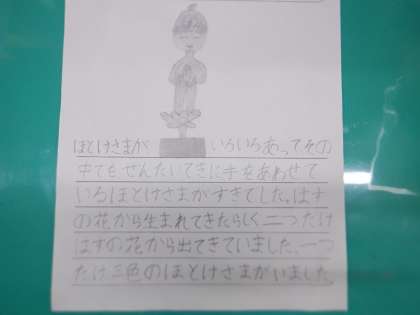 ほとけさまが いろいろあってその
中でもぜんたいてきに手をあわせて
いるほとけさまがすきでした。はす
の花から生まれてきたらしく二つだけ
はすの花から出てきていました。一つ
だけ三色のほとけさまがいました